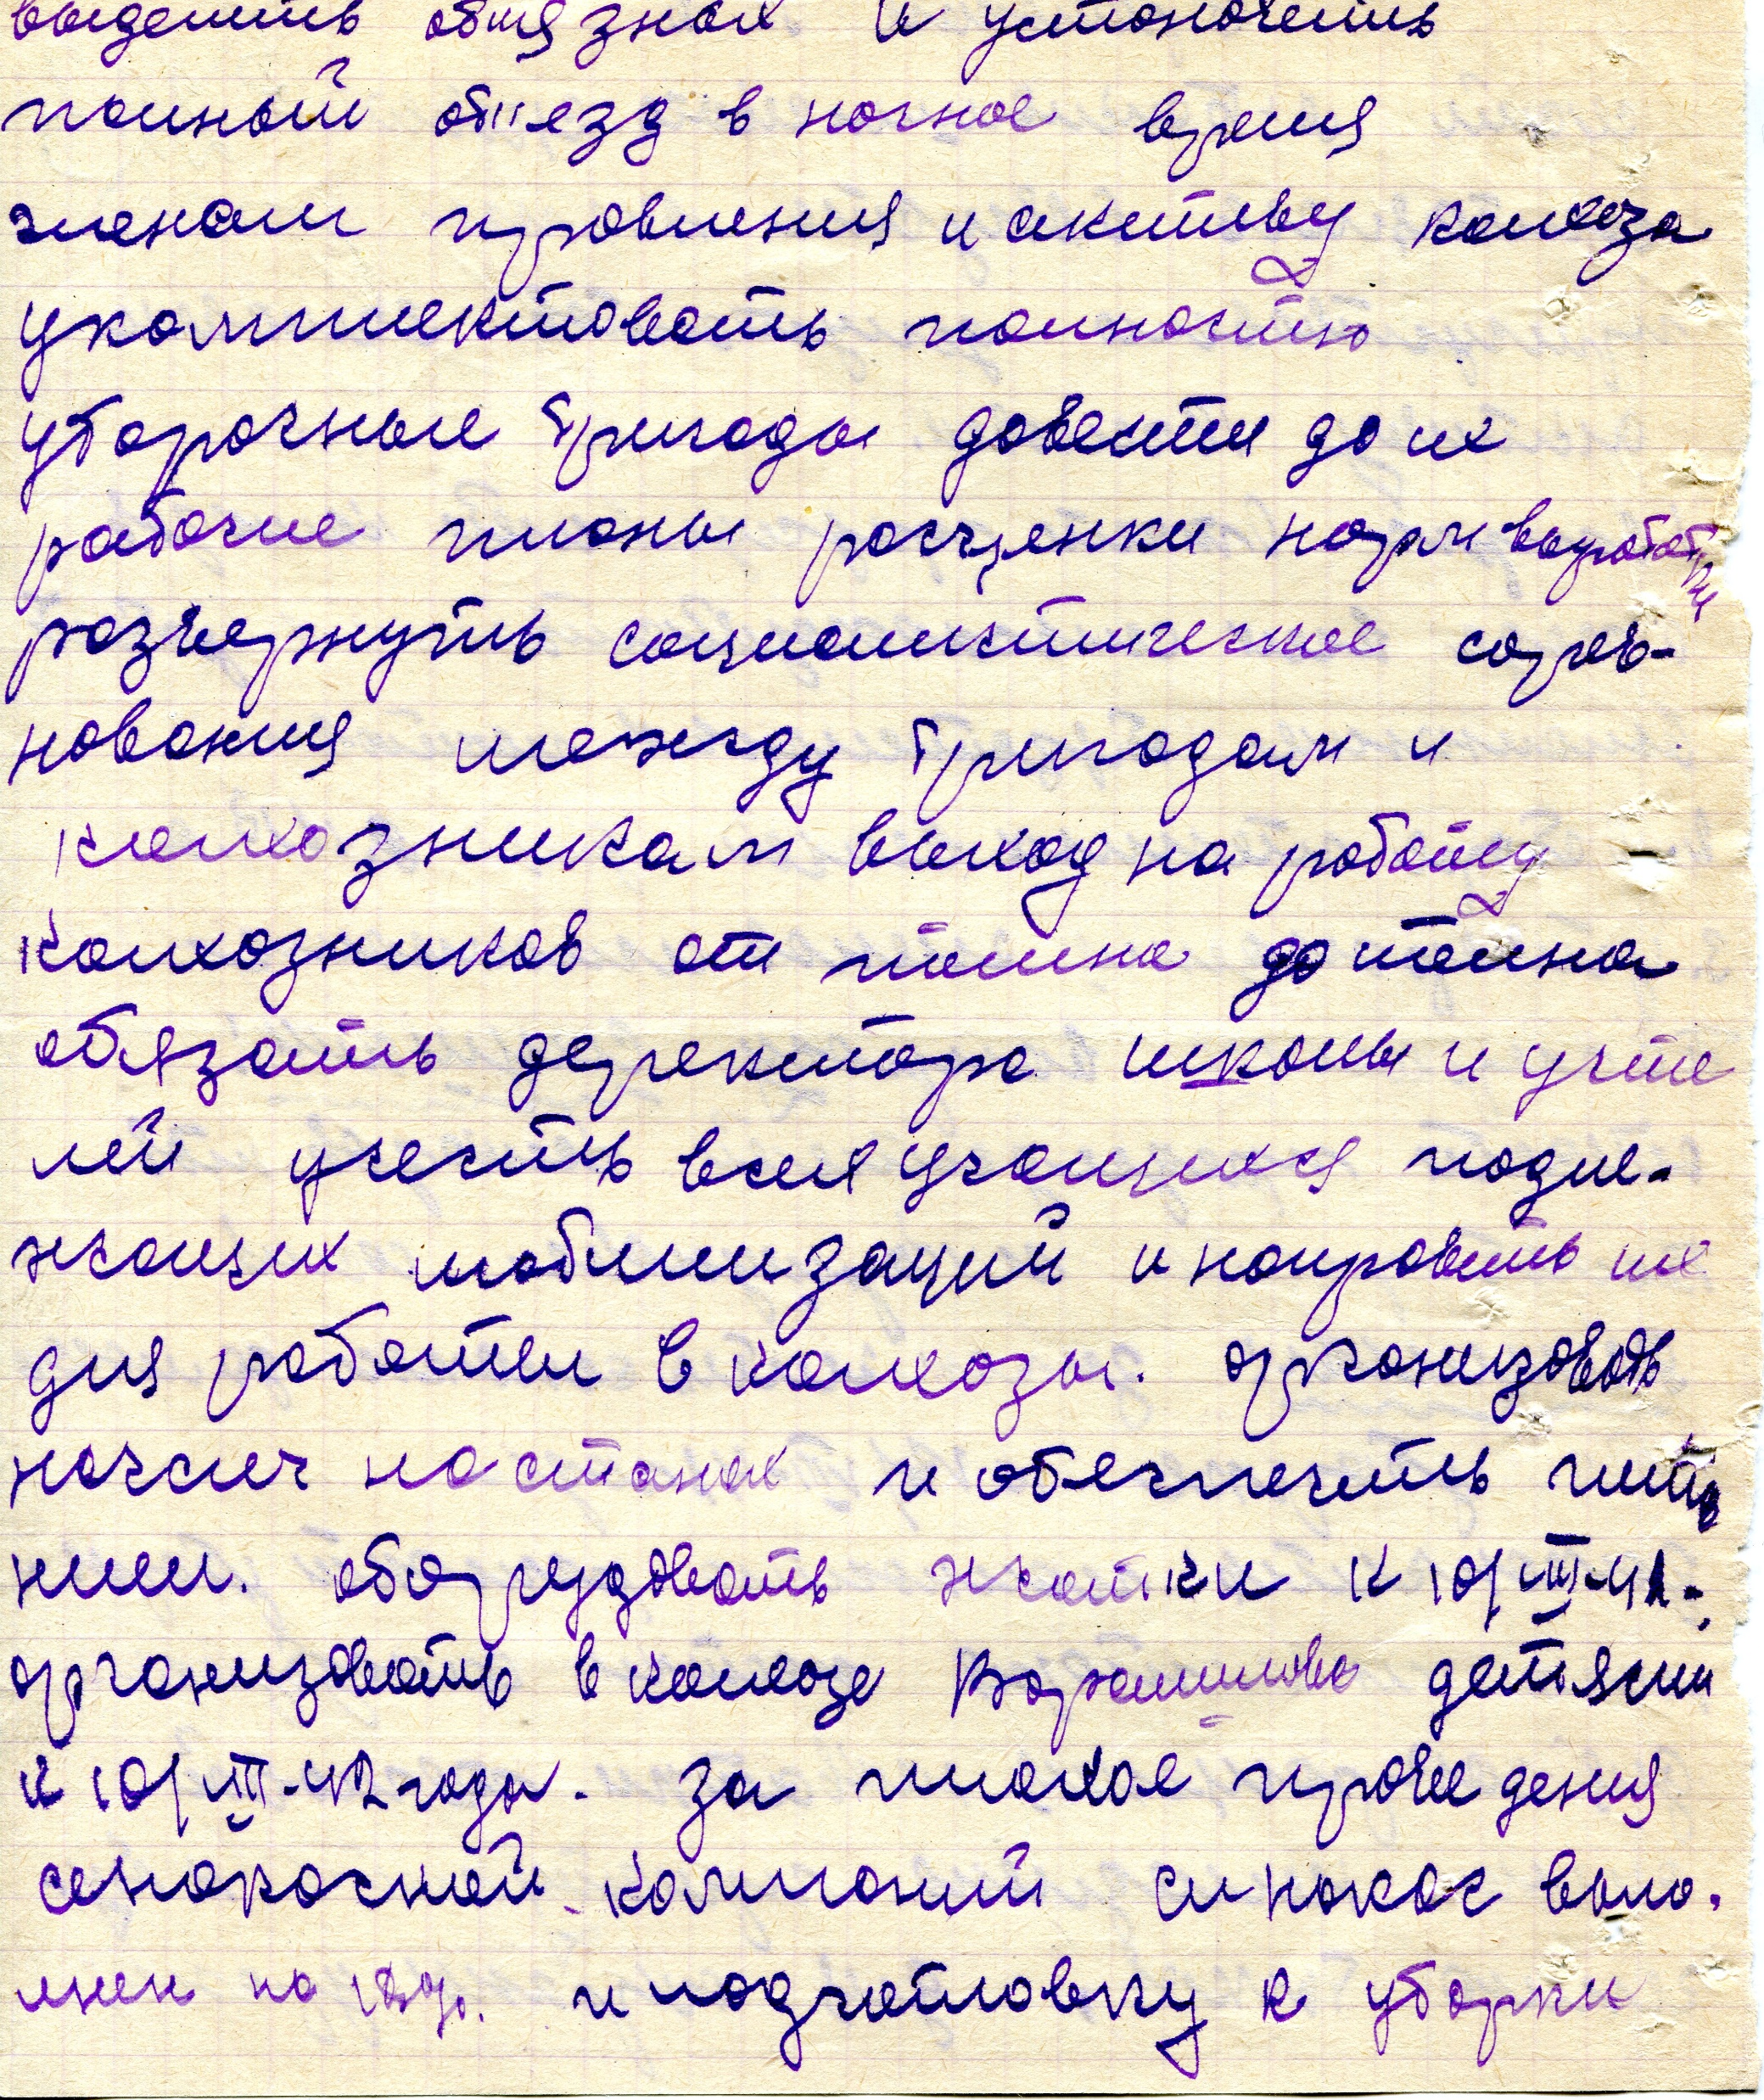 выделить объездных и установить
полный объезд в ночное время
членам провления и активу колхоза
укомплектовать полностью
уборочные бригады довести до их
рабочие планы росценки норм выработки
розвернуть социолистическое сорев-
нования между бригодам и
колхозникам выход на роботу
колхозников от темна до темна
обязать деректора школы и учите
лей учесть всея учащихся подле-
жащих мобилизаций и напровить их
для работы в колхозы. организовать
на станах и обеспечить пита
нием. оборудовать жатки к 10/VIII-42.
организовать в колхозе Ворошилова детясли
к 10/VIII-42 года. За плохое проведения
сенокосной компоний синокос выпо.
лнен на и подготовку к уборки